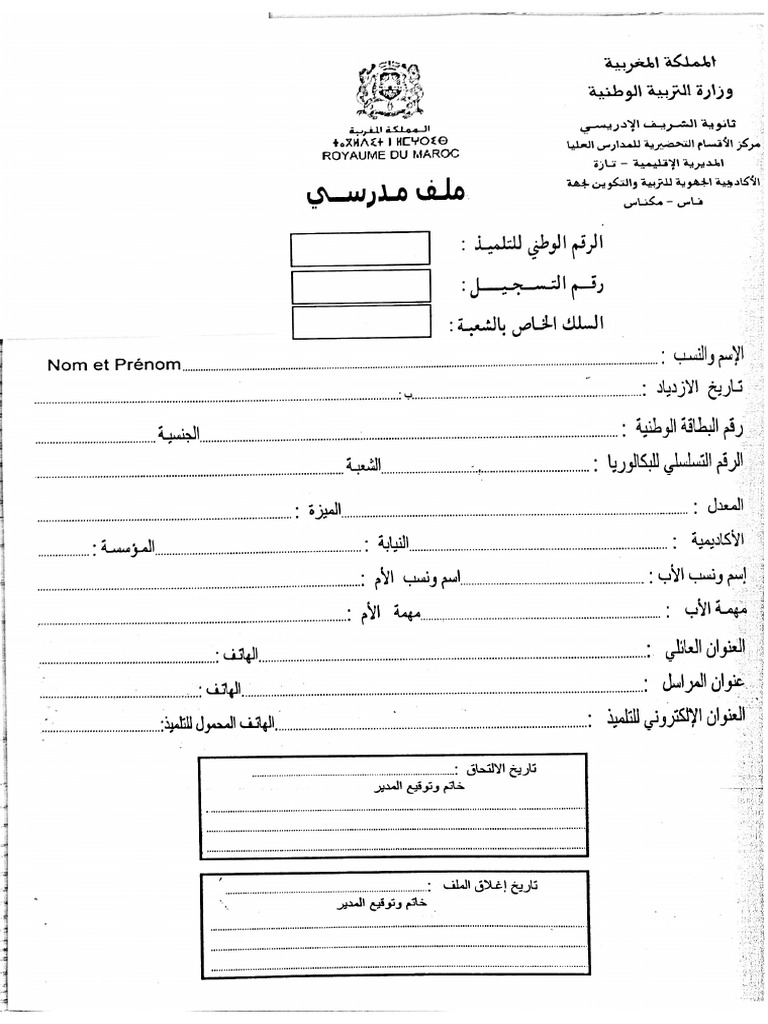 المملكة المغربية
وزارة التربية الوطنية
ثانوية الشريف الإدريسي
مركز الأقسام التحضيرية للمدارس العليا
المديرية الإقليمية - تازة
الأكاديمية الجهوية للتربية والتكوين لجهة
فاس - مكناس
المملكة المغربية
ⵜⴰⴳⵍⴷⵉⵜ ⵏ ⵍⵎⵖⵔⵉⴱ
ROYAUME DU MAROC
ملف مدرسي
الرقم الوطني للتلميذ :
رقم التسجيل :
السلك الخاص بالشعبة :
الإسم والنسب : Nom et Prénom
تاريخ الازدياد : ب:
رقم البطاقة الوطنية : الجنسية
الرقم التسلسلي للبكالوريا : الشعبة
المعدل : الميزة :
الأكاديمية : النيابة : المؤسسة :
إسم ونسب الأب : اسم ونسب الأم :
مهمة الأب : مهمة الأم :
العنوان العائلي : الهاتف :
عنوان المراسل : الهاتف :
العنوان الإلكتروني للتلميذ : الهاتف المحمول للتلميذ:
تاريخ الالتحاق :
خاتم وتوقيع المدير
تاريخ إغلاق الملف :
خاتم وتوقيع المدير